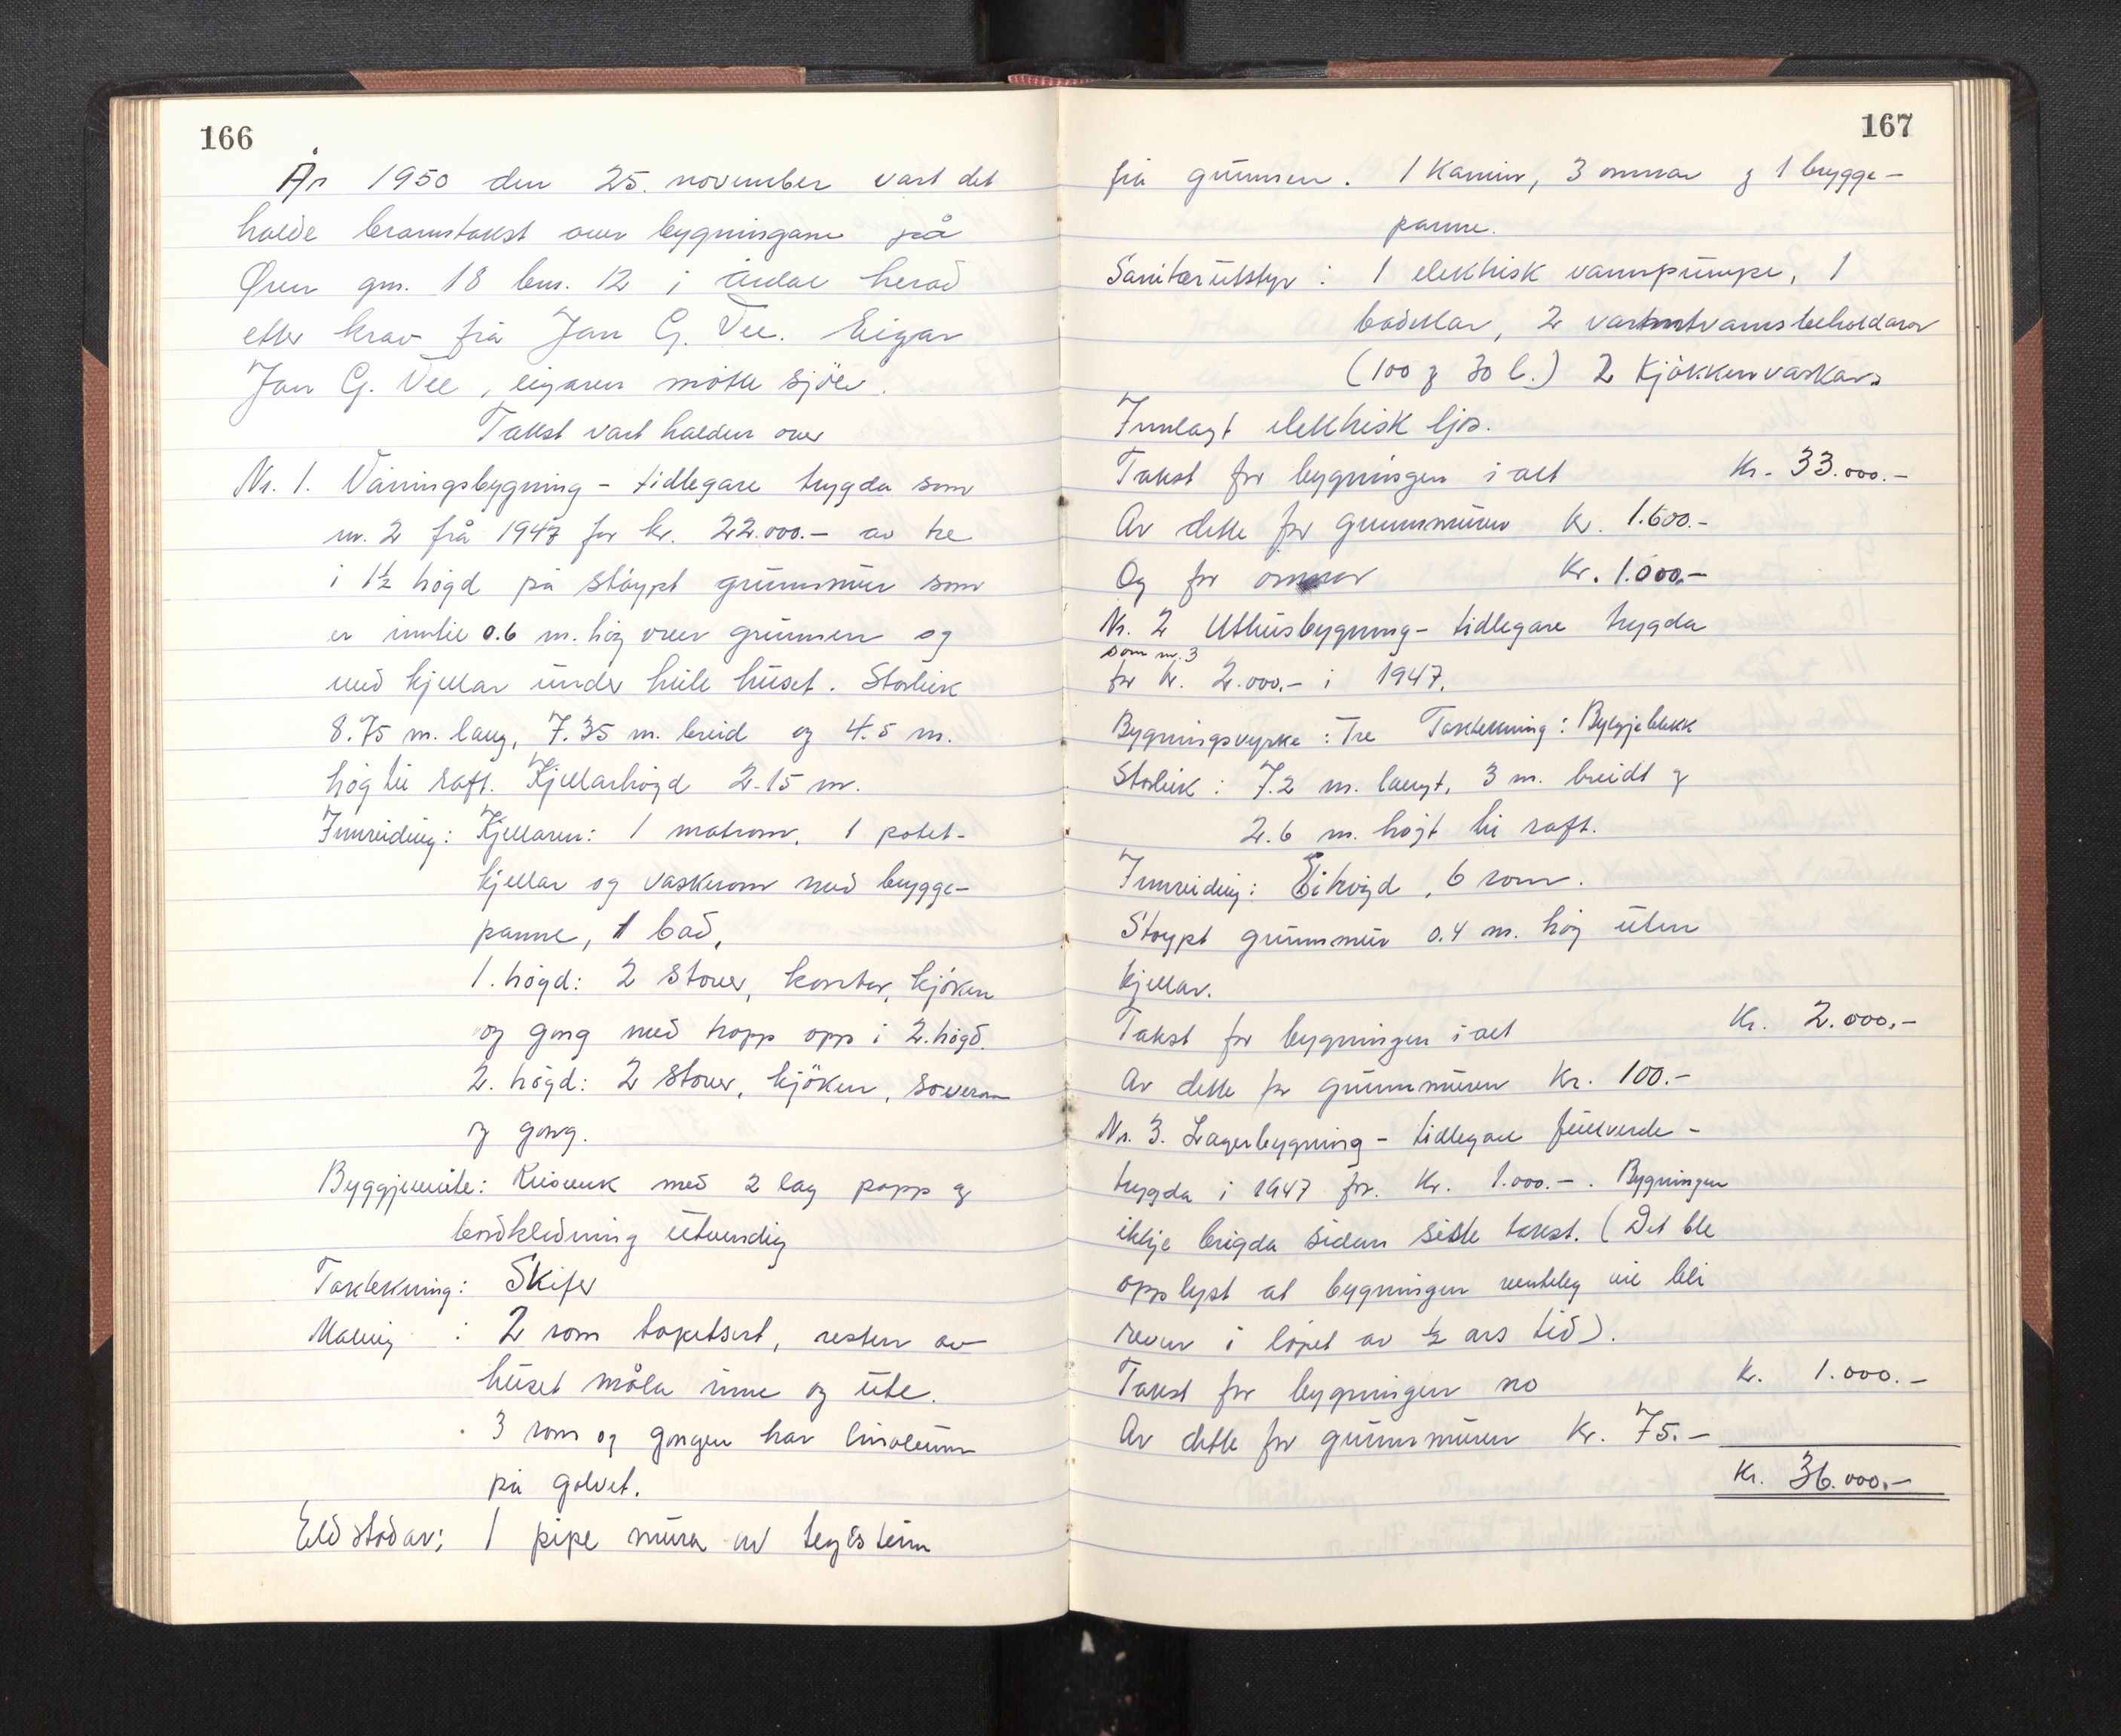 166
År 1950 den 25. november vart det
halde branntakst over bygningane på
Øren gm. 18 bm. 12 i årdal herad
etter krav frå Jan G. Vee. Eigar
Jan G. Vee, eigaren møtte sjölv.
Takst vart halden over
Nr. 1. Våningsbygning - tidlegare trygda som
nr. 2 frå 1947 for kr. 22.000.- av tre
i 1½ högd på stöypt grunnmur som
er inntil 0.6 m. hög over grunnen og
med kjellar under heile huset. Storleik
8.75 m. lang, 7.35 m. breid og 4.5 m.
hög til raft. Kjellarhögd 2.15 m.
Innreiding: Kjellaren: 1 matrom, 1 potet-
kjellar og vaskerom med brygge-
panne, 1 bad,
1. högd: 2 stover, kontor, kjöken
og gong med tropp opp i 2. högd.
2. högd: 2 stover, kjöken, soverom
og gong.
Byggjemåte: Reisverk med 2 lag papp og
bordkledning utvendig
Taktekning: Skifer
Maling : 2 rom tapetsert, resten av
huset måla inne og ute.
3 rom og gongen har linoleum
på golvet.
Eldstadar: 1 pipe mura av teglstein
167
frå grunnen. 1 Kamin, 3 omnar og 1 brygge-
panne.
Sanitærutstyr : 1 elektrisk vannpumpe, 1
badekar, 2 varmtvannsbeholdarar
(100 og 30 l.) 2 Kjökkenvaskar
Innlagt elektrisk ljos.
Takst for bygningen i alt Kr. 33.000.-
Av dette for grunnmuren Kr. 1.600.-
Og for omnar Kr. 1.000.-
Nr. 2 Uthusbygning - tidlegare trygda
som nr. 3
for kr. 2.000.- i 1947.
Bygningsvyrke : Tre Taktekning : Bylgjeblekk
Storleik : 7.2 m. langt, 3 m. breidt og
2.6 m. högt til raft.
Innreiding: Eihögd, 6 rom.
Stöypt grunnmur 0.4 m. hög uten
kjellar.
Takst for bygningen i alt Kr. 2.000.-
Av dette for grunnmuren Kr. 100.-
Nr. 3. Lagerbygning - tidlegare fullverde -
trygda i 1947 for. Kr. 1.000.-. Bygningen
ikkje brigda sidan siste takst. (Det ble
opplyst at bygningen venteleg vil bli
reven i löpet av ½ års tid).
Takst for bygningen no Kr. 1.000.-
Av dette for grunnmuren Kr. 75.-
Kr. 36.000.-